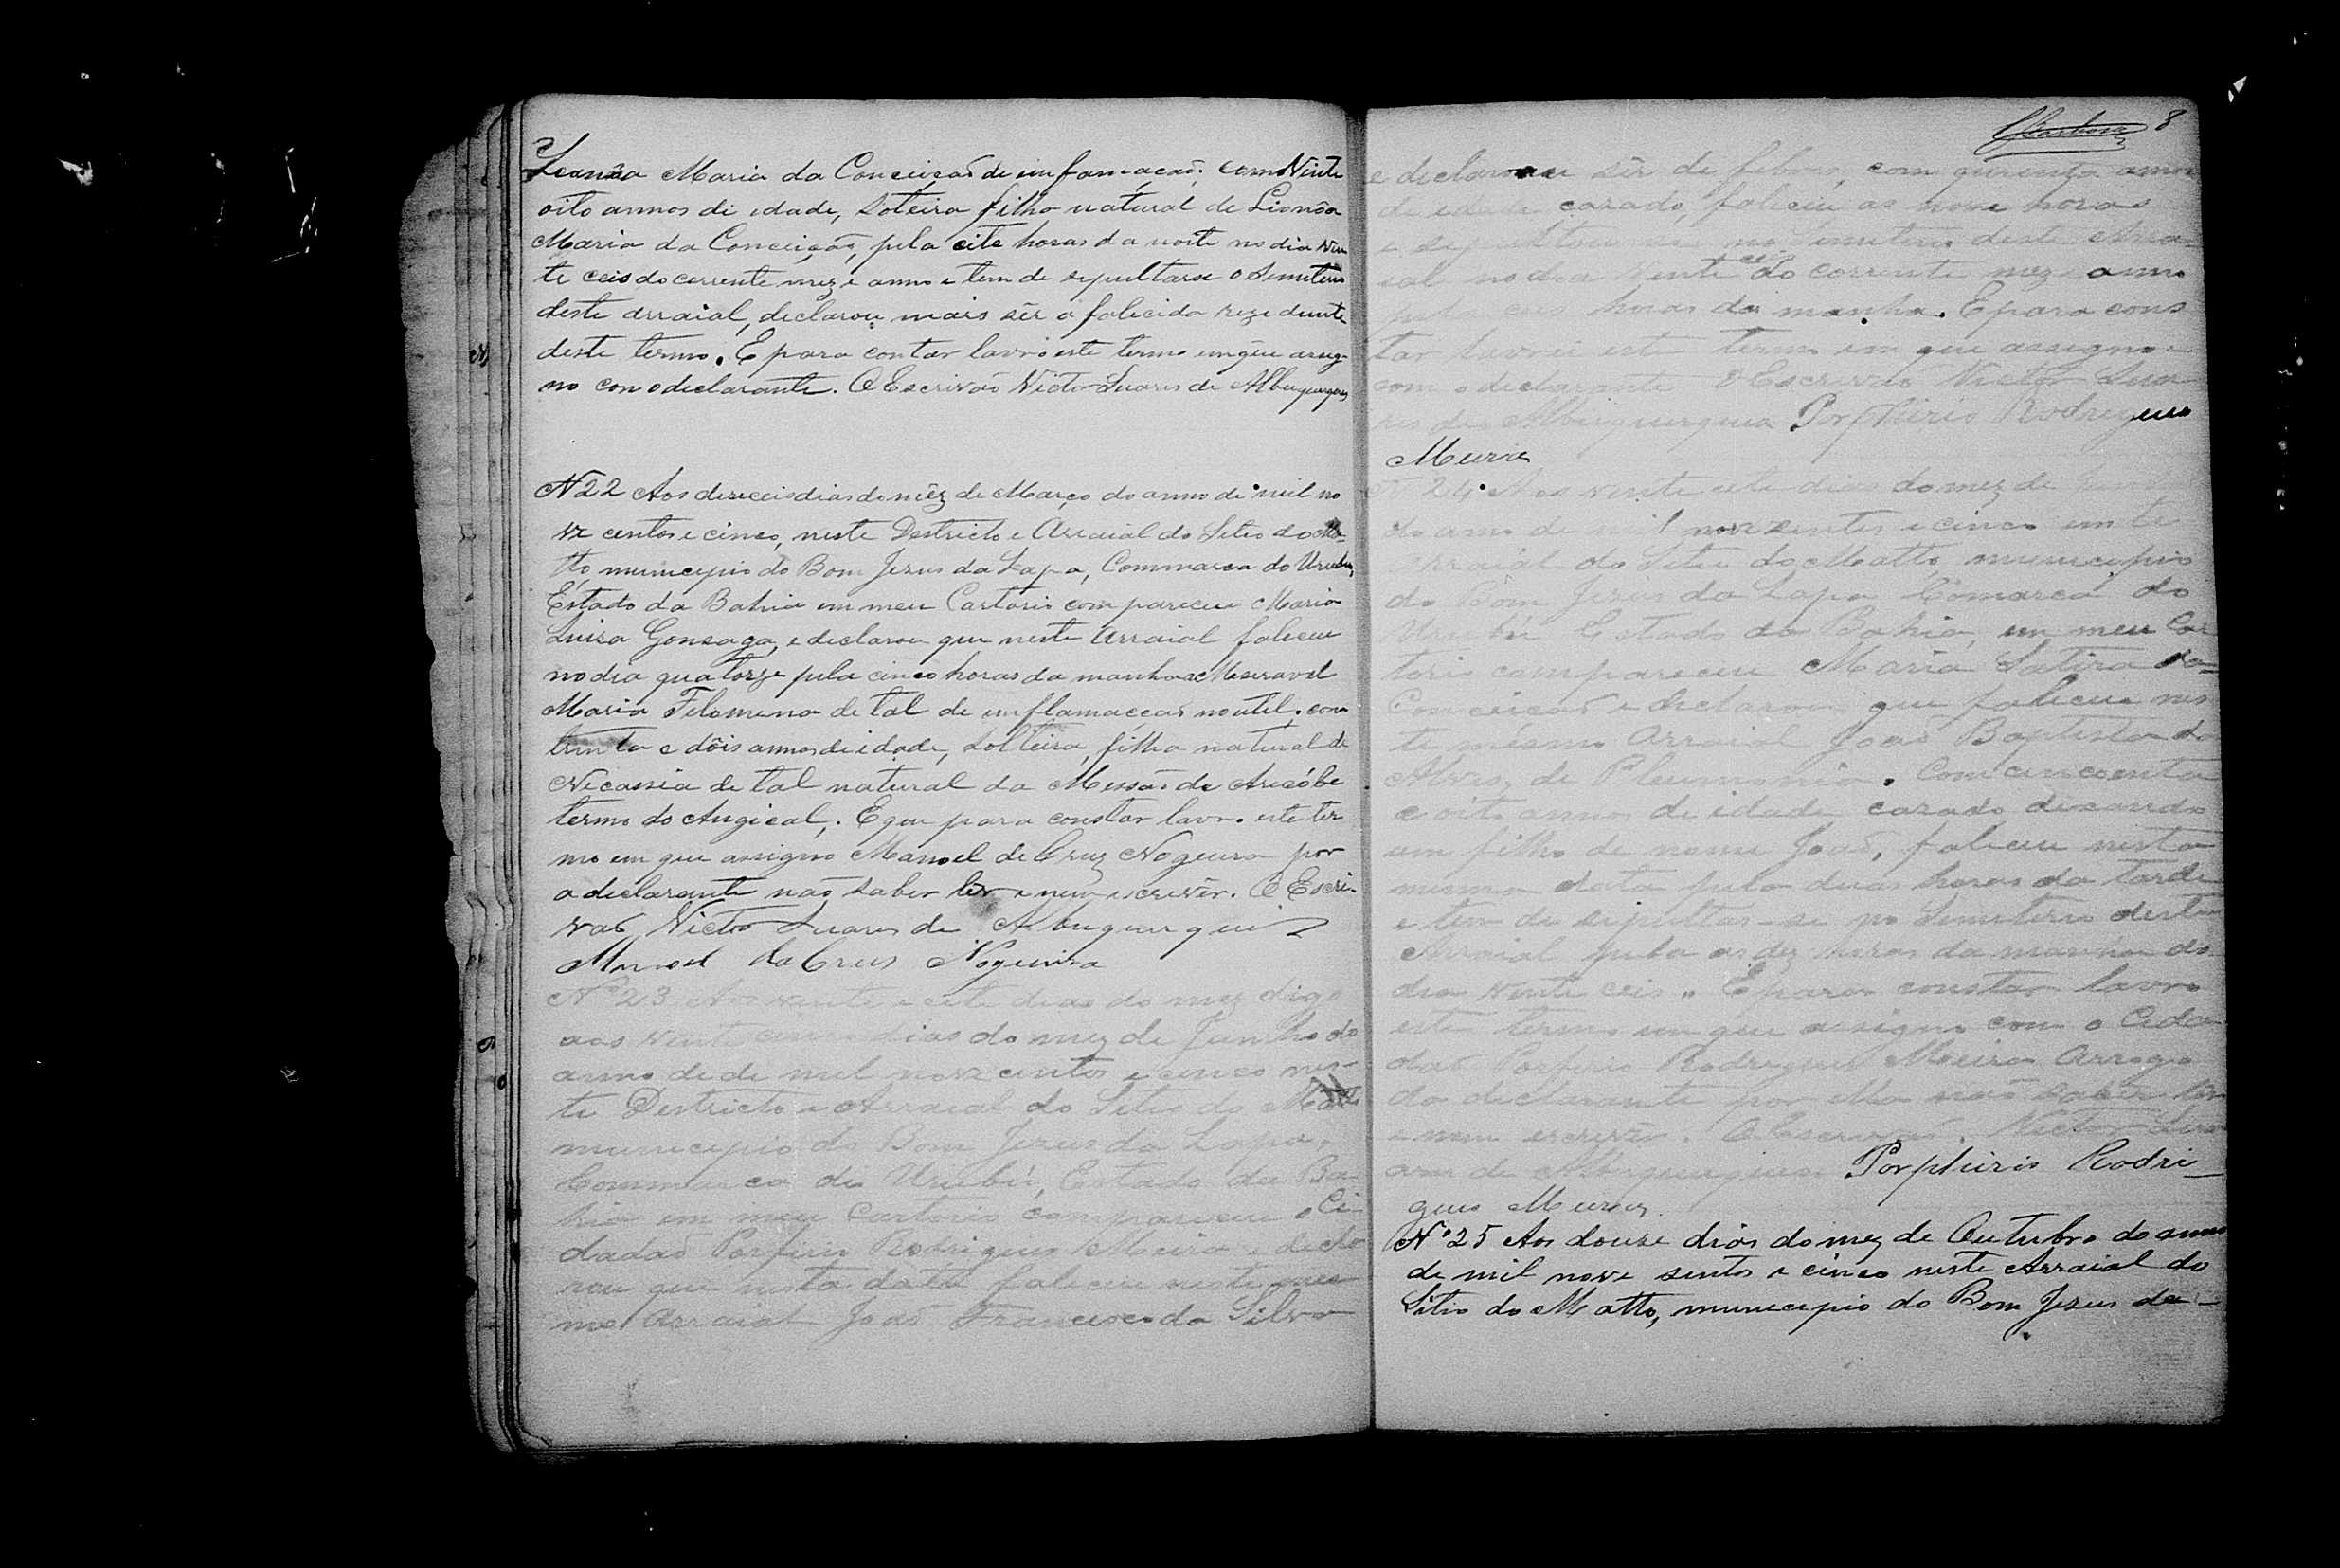 Leanôa Maria da Conceiçaõ de imfamaçaõ; com Vinte
oito annos di idade, soteira filha natural de Lionôa
Maria da Conceiçaõ, pela cite horas da noite no dia vin
te ceis do corrente mez e anno e tem de sepultarse o Semiterio
deste arraial, declarou mais sêr a falicida rezedente
deste termo. E para contar lavro este termo em que assig-
no com o declarante. O Escrivão Victor Suares de Albuquerques
N 22 Aos deseceis dias do mêz de Março do anno de mil no
ve centos e cinco, neste Destricto e Arraial do Sitio do Ma-
tto, municipio do Bom Jezus da Lapa, Commarca do Urubu,
Estado da Bahia em meu Cartorio compareceu Maria
Luiza Gonsaga, e declarou que neste arraial faleceu
no dia quatorze pela cinco horas da manhã a Meseravel
Maria Felomena de tal de imflamaccaõ no util, com
trinta e dôis annos de idade, solteira, filha natural de
Necassia de tal natural da Messaõ de Aricóbe
termo do Angical,. E que para constar lavro este ter
mo em que assigno Manoel da Cruz Nogeura por
a declarante naõ saber lêr e nem escrevêr. O Escri-
vaõ Victor Suares de Albuquerques
Manoel da Crus Nogueira
Nº 23 Aos vinte e cete dias do mez digo
aos vinte cinco dias do mez de Junho do
anno de de mil nove centos e cinco nes-
te Destricto e Arraial do Sitio do Matto
municipio do Bom Jezus da Lapa,
Commarca do Urubú, Estado da Ba-
hia em meu Cartorio compareceu o Ci-
dadaõ Porfirio Rodrigues Meira e decla
rou que nesta data faleceu neste mes
mo Arraial Joaõ Francisco da Silva
8
e declarou sêr de febre, com qurenta annos
de idade cazado, faleceu as nove horas
e sepultou no Semiterio deste Arra-
ial no dia vinte ceis do corrente mez e anno
pelas ceis horas da manha. E para cons
tar lavrei este termo em que assigno
com o declarante O Escrivão Victor Sua
res de Albuquerques Porphirio Rodrigues
Meira
N 24 Aos vinte cete dias do mez de
do anno de mil nove sentos e cinco em te
arraial do Sitio do Matto, municipio
do Bom Jezus da Lapa Cómarca do
Urubú Estado da Bahia, em meu Car
torio compareceu Maria Satira da
Conceicaõ e declarou que faleceu nes
te mésmo Arraial Joaõ Baptista de
Alves, de Pleumonia. Com cincoenta
e oito annos de idade cazado deixando
um filho de nome Joaõ, faleceu nesta
mesma data pela duas horas da tarde
e tem de sepultar-se no Semiterio deste
Arraial pela as dez horas da manha do
dia vinte ceis. E para constar lavro
este termo em que assigno com o Cida
daõ Porfirio Rodrigues Meira Arrogo
da declarante por ella naõ saber lêr
e nem escrevêr. O Escrivaõ. Victor Sua
res de Albuquerques Porphirio Rodri-
gues Meira
Nº 25 Aos douse dias do mez de Outubro do anno
de mil nove sentos e cinco neste Arraial do
Sitio do Matto, municipio do Bom Jezus da-